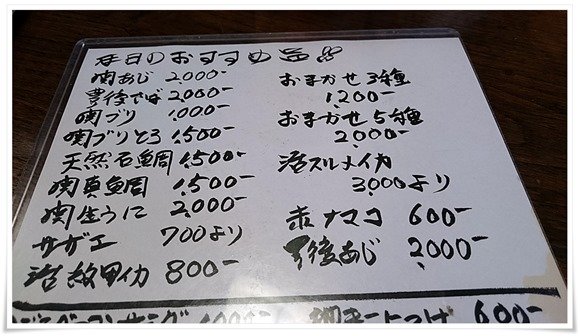 本日のおすすめ品!!
関あじ 2,000-
豊後さば 2,000-
関ブリ 1,000-
関ブリとろ 1,500-
天然石鯛 1,500-
関真鯛 1,500-
関生うに 2,000-
サザエ 700より
活紋甲イカ 800-
おまかせ3種
1,200-
おまかせ5種
2,000-
活スルメイカ
3,000より
赤ナマコ 600-
豊後あじ 2,000-
600-